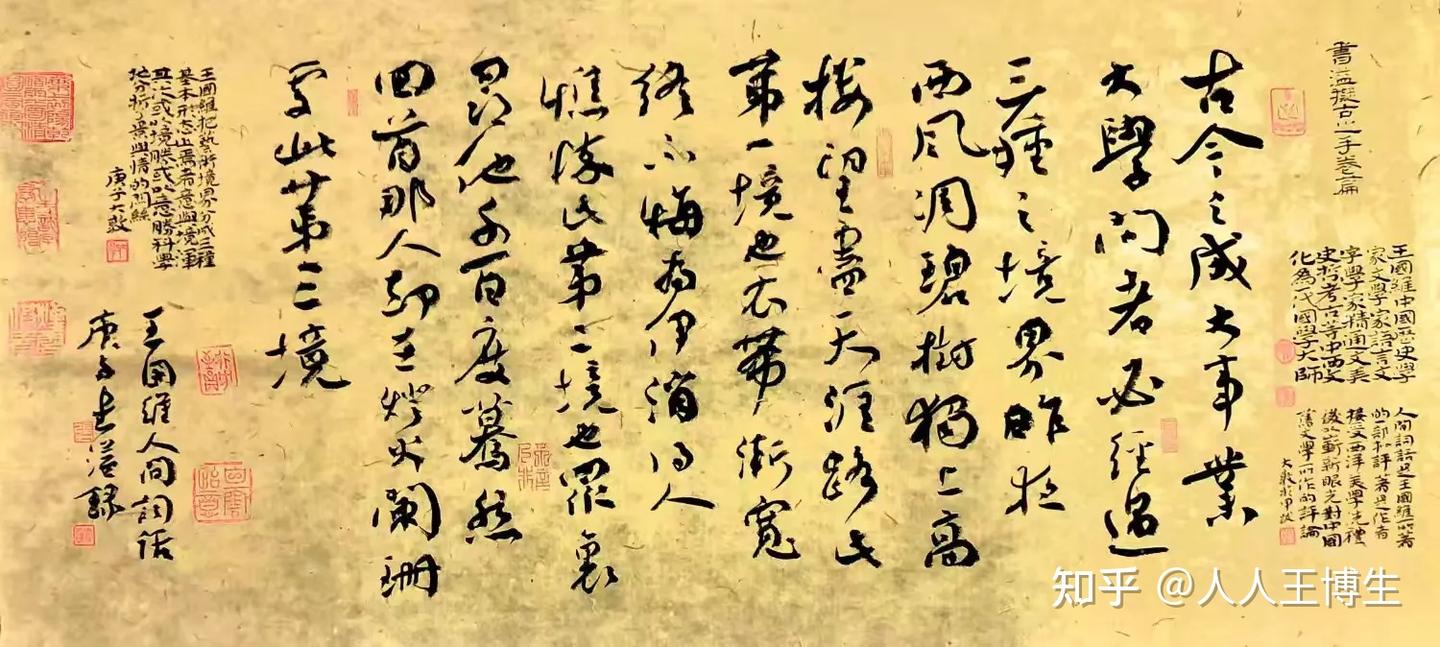 書溢擬古之手卷篇
王國維中國歷史學
家文學家語言文
字學家精通文美
史哲考古等中西文
化為一代國學大師
人間詞話是王國維所著
的一部批評著是作者
接受西洋美學洗禮
後以嶄新眼光對中國
舊文學所作的評論
古今之成大事業
大學問者必經過
三種之境界昨夜
西風凋碧樹獨上高
樓望盡天涯路此
第一境也衣帶漸寬
終不悔為伊消得人
憔悴此第二境也眾裏
尋他千百度驀然
回首那人却在燈火闌珊
處此第三境
王國維把藝術境界分成三種
基本形态上焉者意與境渾
其次或以境勝或以意勝科學
地分析了景與情的関絲
庚子大敦
王国維人間詞話
庚子書溢録
知乎 @人人王博生